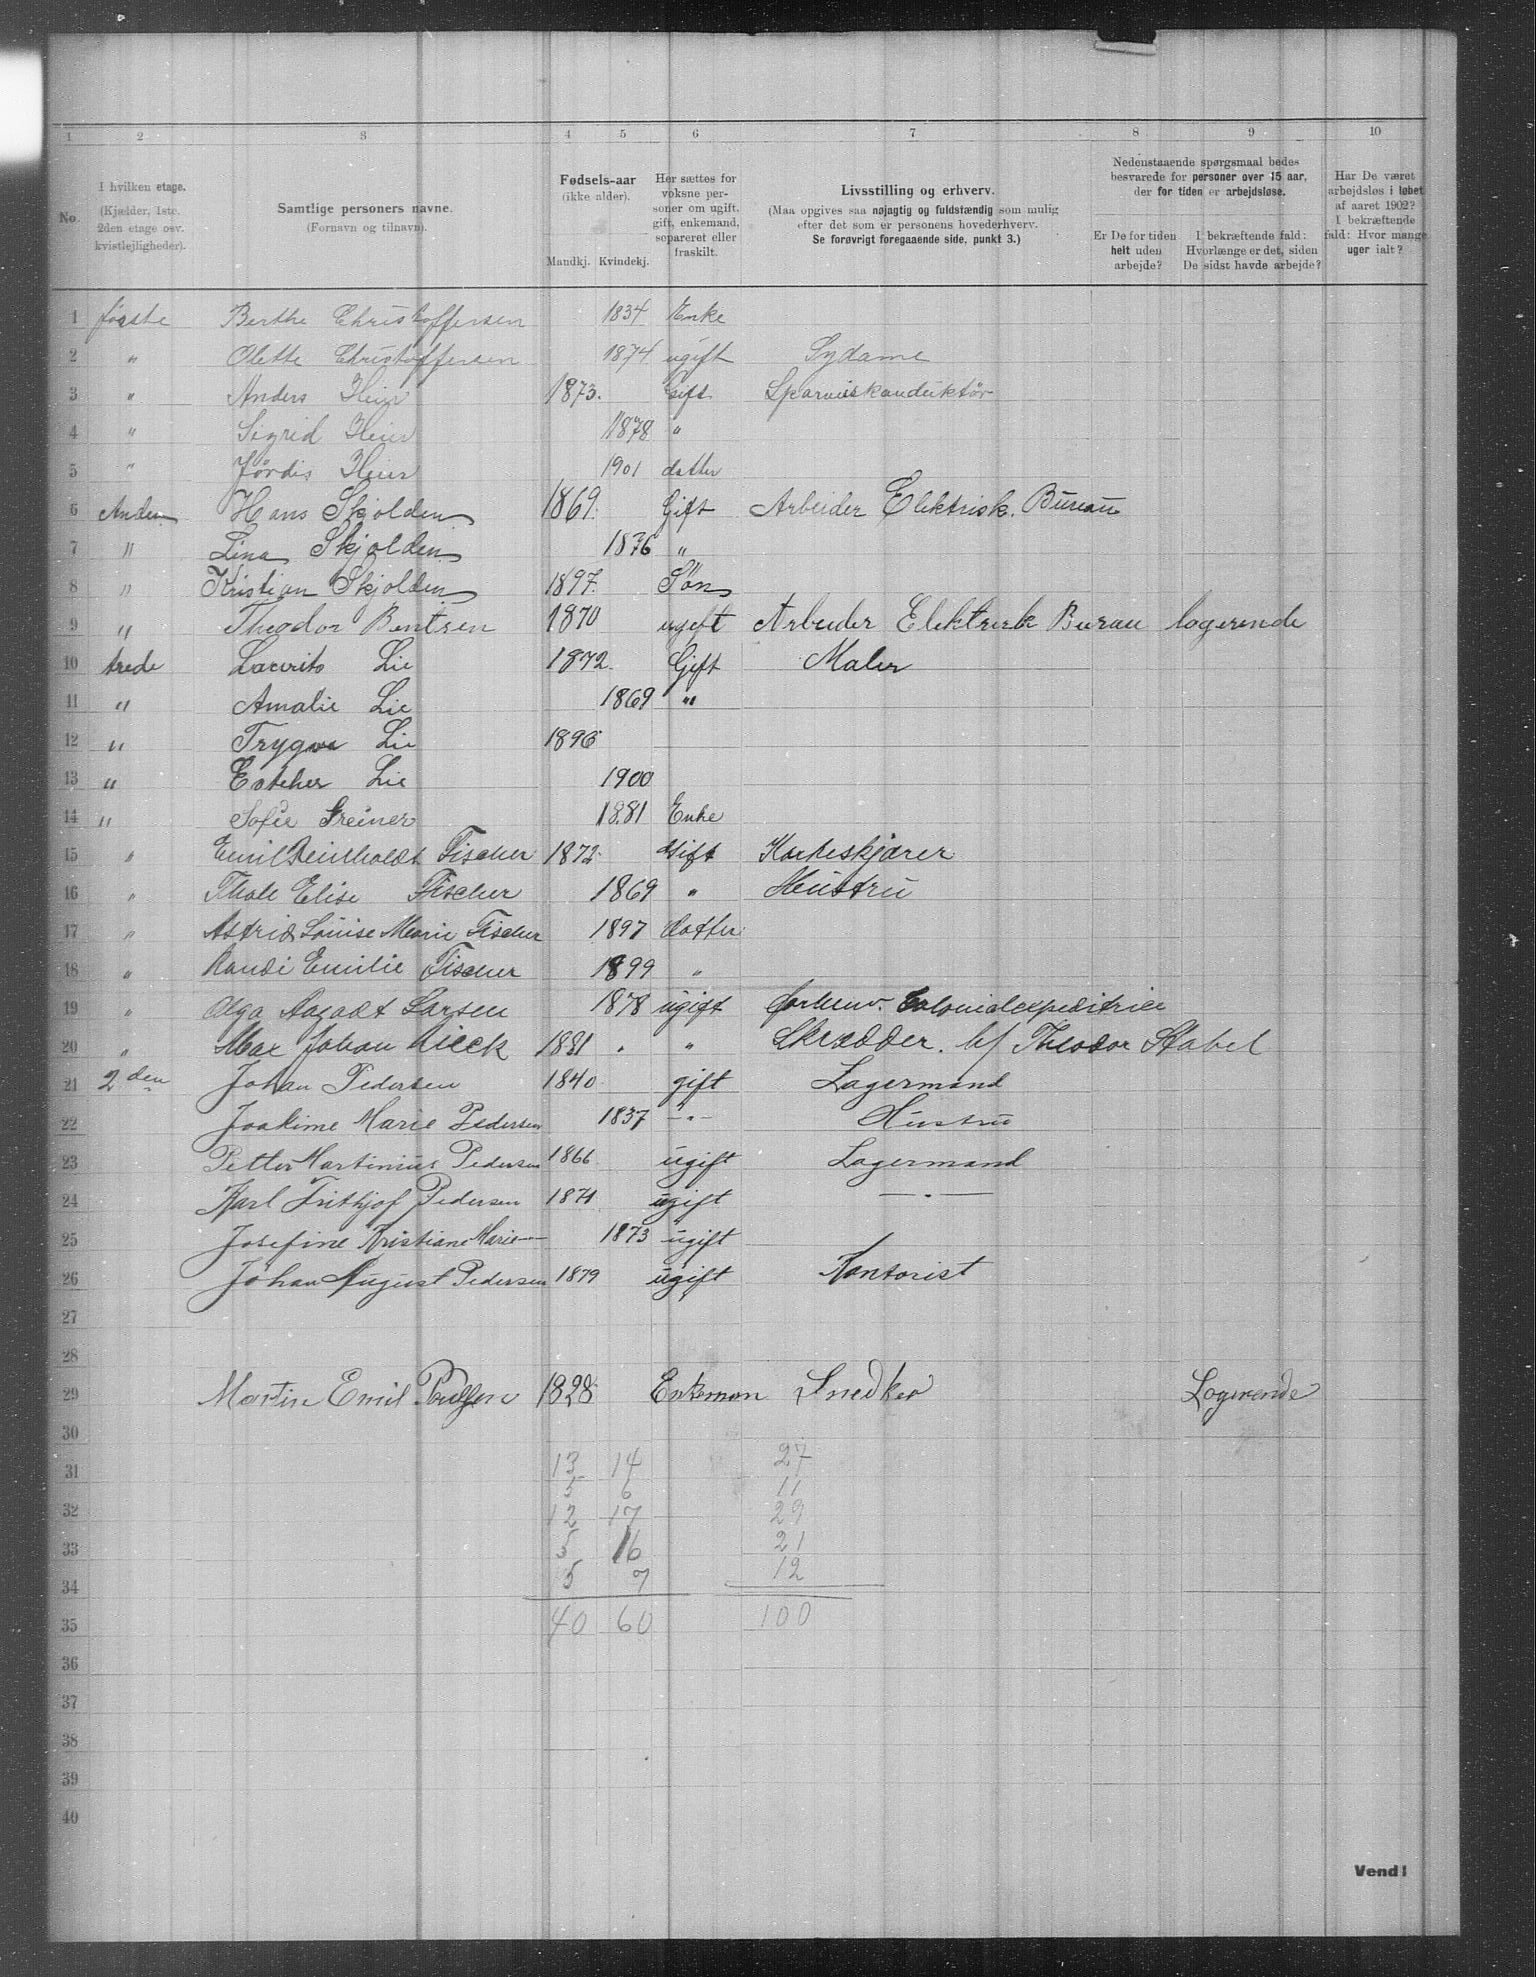 1 2 3 4 5 6 7 8 9 10
No.
I hvilken etage.
(Kjælder, 1ste.
2den etage osv.
kvistlejligheder).
Samtlige personers navne.
(Fornavn og tilnavn).
Fødsels-aar
(ikke alder).
Mandkj. Kvindekj.
Her sættes for
voksne per-
soner om ugift,
gift, enkemand,
separeret eller
fraskilt.
Livsstilling og erhverv.
(Maa opgives saa nøjagtig og fuldstændig som mulig
efter det som er personens hovederhverv.
Se forøvrigt foregaaende side, punkt 3.)
Nedenstaaende spørgsmaal bedes
besvarede for personer over 15 aar,
der for tiden er arbejdsløse.
Er De for tiden
helt uden
arbejde?
I bekræftende fald:
Hvorlænge er det, siden
De sidst havde arbejde?
Har De været
arbejdsløs i løbet
af aaret 1902?
I bekræftende
fald: Hvor mange
uger ialt?
1 første Berthe Christoffersen 1834 Enke
2 " Olette Christoffersen 1874 ugift Sydame
3 " Anders Heier 1873. Gift Sporveiskonduktør
4 " Sigrid Heier 1878 "
5 " Jørdis Heier 1901 datter
6 Anden Hans Skjolden 1869. Gift Arbeider Elektrisk. Bureau
7 " Lina Skjolden 1876 "
8 " Kristian Skjolden 1897. Søn
9 " Theodor Bentsen 1870 ugift Arbeider Elektrisk Bureau logerende
10 trede Laurits Lie 1872. Gift Maler
11 " Amalie Lie 1869 "
12 " Trygve Lie 1896
13 " Estcher Lie 1900
14 " Sofie Greiner 1881 Enke
15 " Emil Reinholdt Fischer 1872. Gift Korkeskjærer
16 " Thale Elise Fischer 1869 " Hustru
17 " Astrid Louise Marie Fischer 1897 datter
18 " Randi Emilie Fischer 1899 "
19 " Olga Aagadt Larsen 1878 ugift forhenv. Colonialexpeditrice
20 " Max Johan Lieck 1881 " " Skrædder. b/ Theodor Stabel
21 2den Johan Pedersen 1840 gift Lagermand
22 Joakime Marie Pedersen 1837 -"- Hustru
23 Petter Martinius Pedersen 1866 ugift Lagermand
24 Karl Frithjof Pedersen 1871 ugift —"—
25 Josefine Kristiane Marie —"— 1873 ugift
26 Johan August Pedersen 1879 ugift Kontorist
27
28
29 Martin Emil Poulsen 1828 Enkeman Snedker Logerende
30
31 13 14 27
5 6 11
32 12 17 29
33 5 16 21
34 5 7 12
35 40 60 100
36
37
38
39
40
Vend!